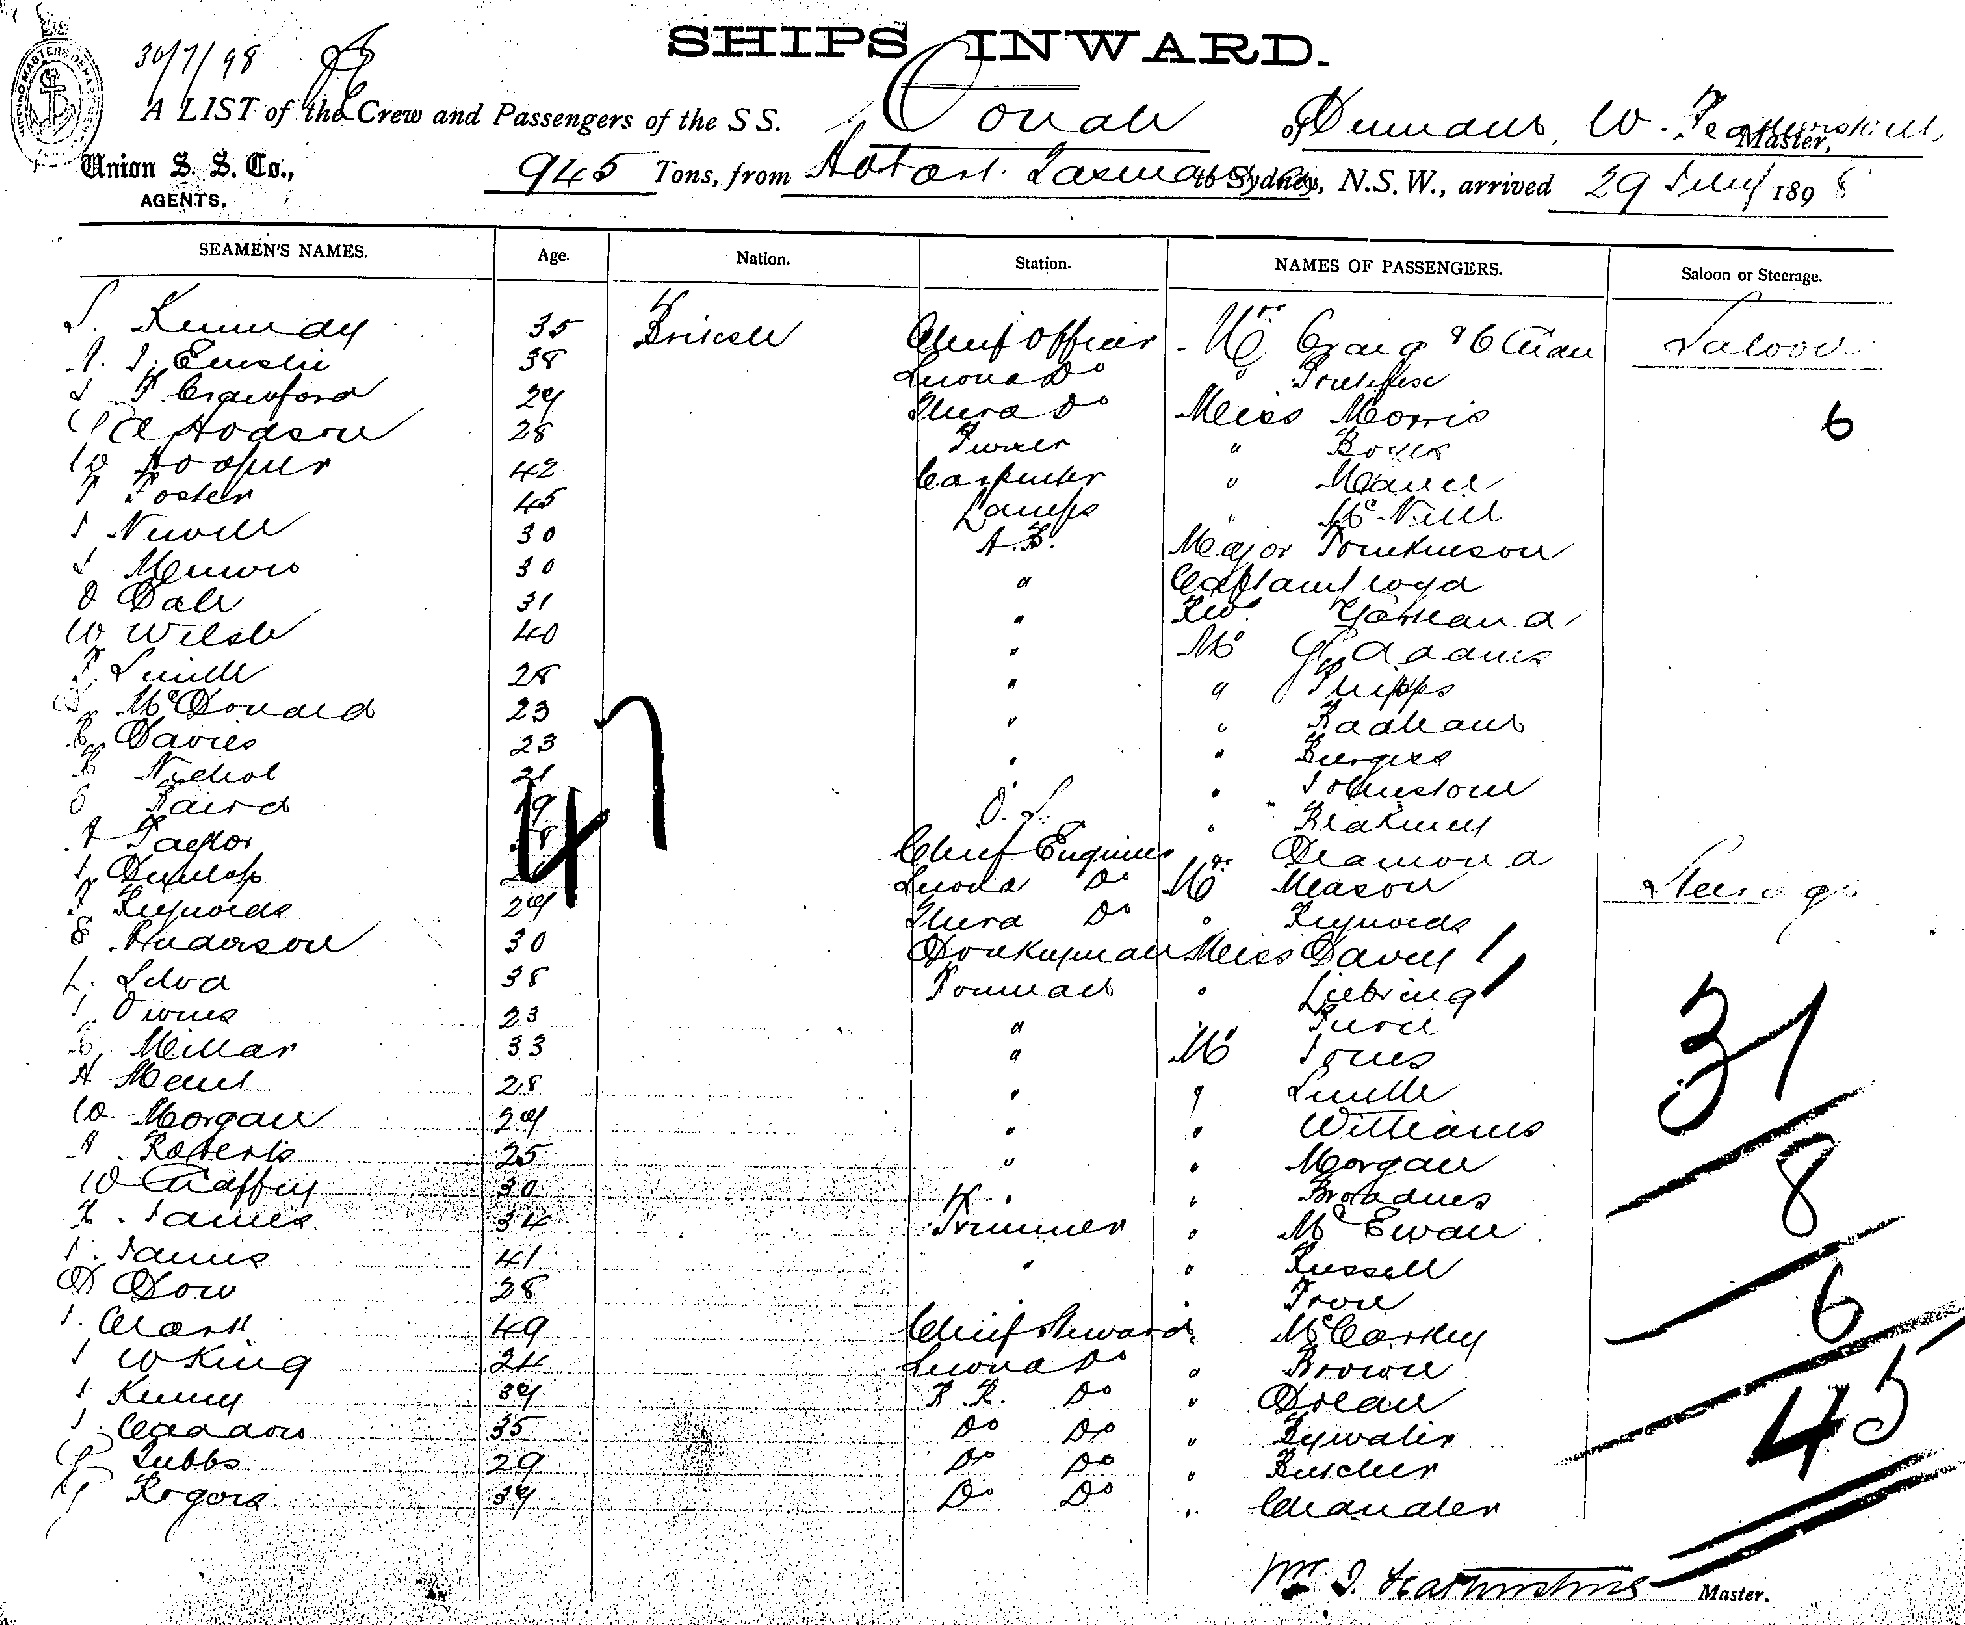 30/7/98
SHIPS INWARD.
A LIST of the Crew and Passengers of the S S. Oonah of Dunedin, W. Featherstone, Master,
Union S. S. Co., AGENTS.
945 Tons, from Hobart. Tasmania to Sydney, N.S.W., arrived 29 July 1898
SEAMEN'S NAMES. Age. Nation. Station. NAMES OF PASSENGERS. Saloon or Steerage.
Kennedy 35 British Chief Officer Mrs Craig & Child Saloon
Emslie 38 Second Do "
Crawford 29 Third Do Miss Morris 6
Hodson 28 Purser " Boyes
W Hooper 42 Carpenter "
Foster 45 Lamps " McNeill
J Newell 30 A.B. Major Tomkinson
J Munro 30 " Captain Lloyd
D Dale 31 " Rev.
W Welsh 40 " Mr G Adams
Smith 28 " " Phipps
McDonald 23 " " Badham
Davies 23 " " Burgess
Nichol 21 " " Johnstone
Baird 19 O.S. " Blakney
A Taylor Chief Engineer " Diamond
J Dunlop Second Do Mrs Mason Steerage
Reynolds 29 Third Do " Reynolds
E Anderson 30 Donkeyman Miss Davey
L. Silva 38 Foreman "
Owens 23 "
Millar 33 " Mr Jones
A 28 " " Smith
W Morgan 29 " " Williams
A Roberts 25 " " Morgan
W Gaffey 30 " "
James 34 Trimmer " McEwan
J. James 41 " " Russell
D Dow 28 " "
J. Clark 49 Chief Steward "
J W King 24 Second Do " Brown
J Kenny 39 F. R. Do " Dolan
J. 35 Do Do " Bywater
G Tubbs 29 Do Do " Butcher
G Rogers 39 Do Do " Chandler
47
31
8
6
45
Wm J. Featherstone Master.